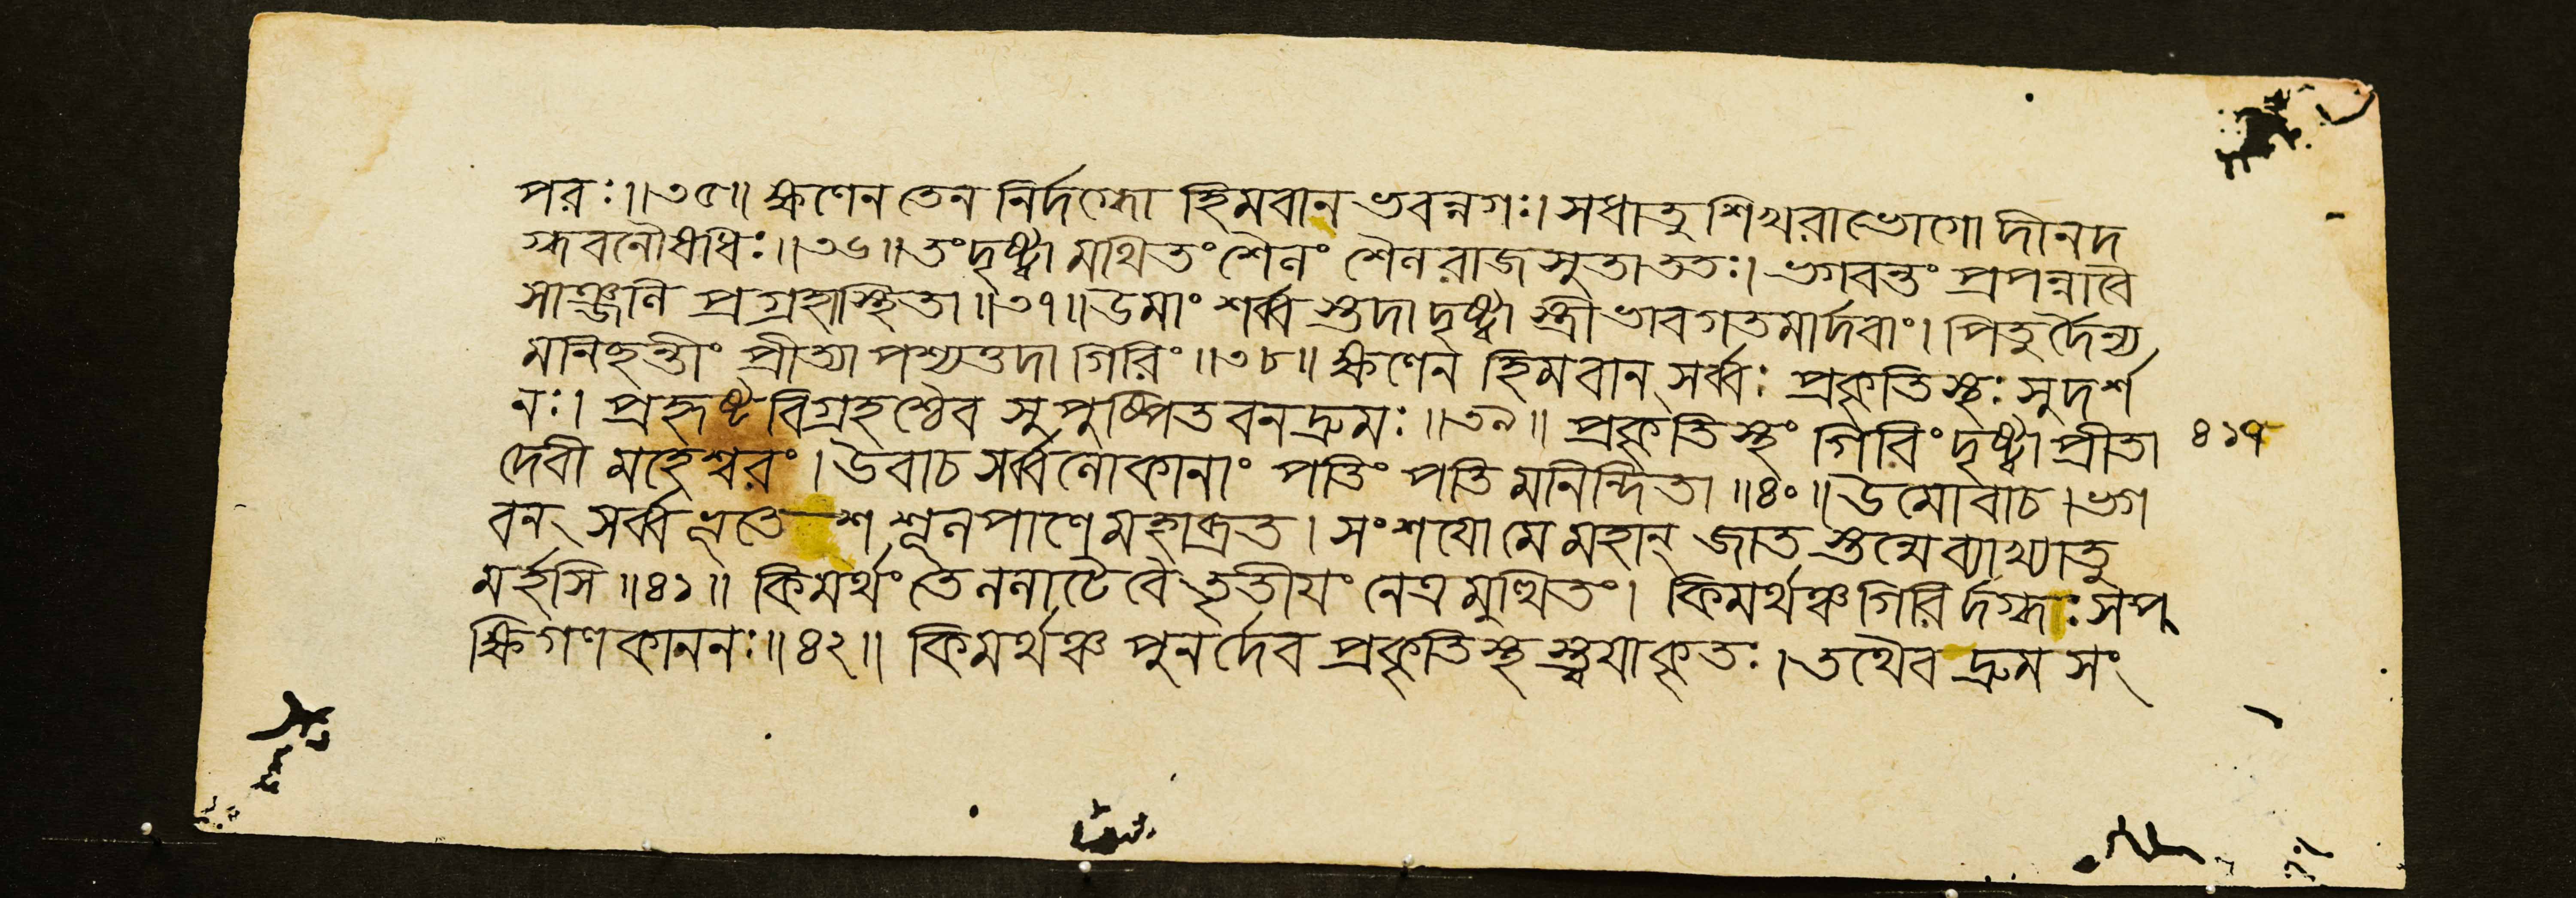 পরঃ॥৩৫॥ ক্ষণেন তেন নির্দগ্ধো হিমবান ভবন্নগঃ। সধাতু শিখরাভোগো দীনদ
গ্ধবনৌষধিঃ॥৩৬॥ তং দৃষ্ট্বা মথিতং শৈলং শৈলরাজসুতা ততঃ। ভগবন্তং প্রপন্নাবৈ
সাঞ্জলি প্রগ্রহাস্থিতা॥৩৭॥ উমাং শর্ব্ব স্তদা দৃষ্ট্বা স্ত্রীভাবগতমার্দবাং। পিতুর্দৈন্য
মনিচ্ছন্তীং প্রীত্যাপশ্যত্তদা গিরিং॥৩৮॥ ক্ষণেন হিমবান্ সর্ব্বঃ প্রকৃতিস্থঃ সুদর্শ
নঃ। প্রহৃষ্টবিগ্রহশ্চৈব সুপুষ্পিতবনদ্রুমঃ॥৩৯॥ প্রকৃতিস্থং গিরিং দৃষ্ট্বা প্রীতা ৪১৭
দেবী মহেশ্বরং। উবাচ সর্ব্বলোকানাং পতিং পতি মনিন্দিতা॥৪০॥ উমোবাচ। ভগ
বন্ সর্ব্বভূতেশ শূলপাণে মহাব্রত। সংশয়োমে মহান্ জাত স্তন্মেব্যাখ্যাতু
মর্হসি॥৪১॥ কিমর্থং তে ললাটেবৈ তৃতীয়ং নেত্রমুত্থিতং। কিমর্থঞ্চ গিরির্দগ্ধঃ সপ
ক্ষিগণকাননঃ॥৪২॥ কিমর্থঞ্চ পুনর্দেব প্রকৃতিস্থ স্ত্বয়াকৃতঃ। তথৈব দ্রুম সং